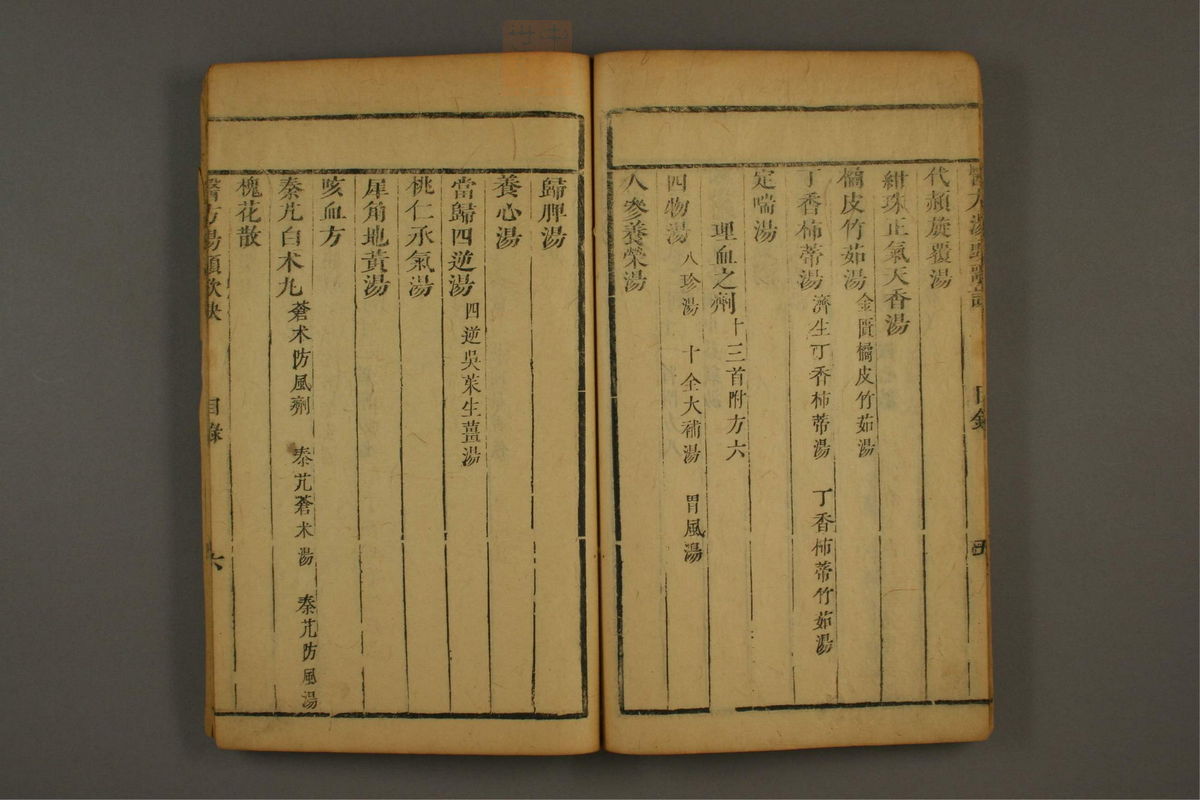 代赭旋覆湯
紺珠正氣天香湯
橘皮竹茹湯 金匱橘皮竹茹湯
丁香柿蒂湯 濟生丁香柿蒂湯 丁香柿蒂竹茹湯
定喘湯
理血之劑 十三首附方六
四物湯 八珍湯 十全大補湯 胃風湯
人參養榮湯
歸脾湯
養心湯
當歸四逆湯 四逆吳茱生薑湯
桃仁承氣湯
犀角地黃湯
咳血方
秦艽白术丸 蒼术防風劑 秦艽蒼术湯 秦艽防風湯
槐花散
醫方湯頭歌訣 目錄 六